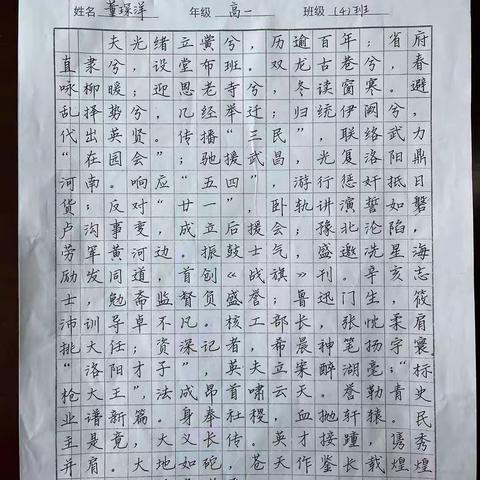 姓名 董琛洋 年级 高一 班级 (4)班
夫光绪立黉兮，历逾百年；省府
直隶兮，设堂布班。双龙古巷兮，春
咏柳暖；迎恩老寺兮，冬读窗寒。避
乱择势兮，几经举迁；归统伊阙兮，
代出英贤。传播“三民”，联络武力
“在园会”；驰援武昌，光复洛阳鼎
河南。响应“五四”，游行惩奸抵日
货；反对“廿一”，卧轨讲演誓如磐
卢沟事变，成立后援会；豫北沦陷，
劳军黄河边。振鼓士气，盛邀冼星海
励发同道，首创《战旗》刊。辛亥志
士，勉斋监督负盛誉；鲁迅门生，筱
沛训导卓不凡。核工部长，张忱柔肩
挑大任；资深记者，希晨神笔扬宇寰
“洛阳才子”，英夫立案醉湖亳；“标
枪大王”，法成昂首啸云天。誉勒青史
业谱新篇。身奉社稷，血抛轩辕。民
主是竟，大义长传。英才接踵，隽秀
并肩。大地如砣，苍天作鉴长载煌煌